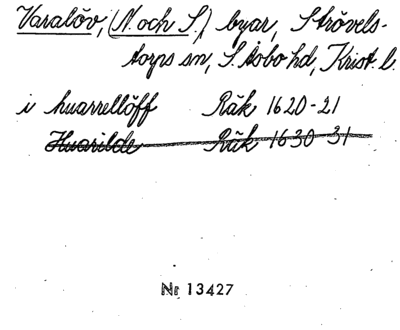 Varalöv, (N. och S.) byar, Strövels-
torps sn, S. Åsbo hd, Krist. l.
i huarrellöff Räk 1620-21
Huarilde Räk 1630-31
Nr 13427